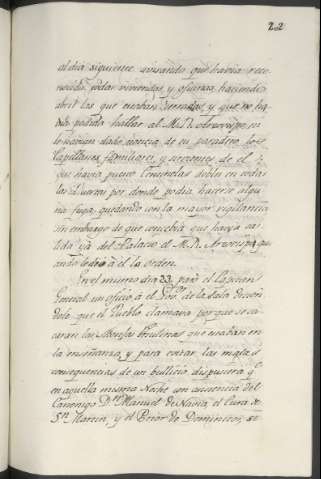 22
al dia siguiente avisando que havia reco-
nocido todas viviendas, y oficinas, haciendo
abrir las que estaban cerradas, y que no ha-
bia podido hallar al M.R. Arzovispo, ni
le havian dado noticia de su paradero los
Capellanes, familiares, y sirvientes de el: y
que havia puesto Centinelas dobles en todas
las por donde podia hacerse algu-
na fuga, quedando con la mayor vigilancia
sin embargo de que concebia que havia sa-
lido ya del Palacio el M.R. Arzovispo qu-
ando le dió á el la orden.
En el mismo dia 23 pasó el Capitan
General un oficio á el de la Sala dicien
dole que el Pueblo clamava por que se sa-
caran las Monjas que estaban en
la enseñanza, y para evitar las malas
consequencias de un bullicio dispusiera q.e
en aquella misma Noche con asistencia del
Canonigo D.n Manuel de Navia, el Cura de
S.n Martin, y el Prior de Dominicos, se